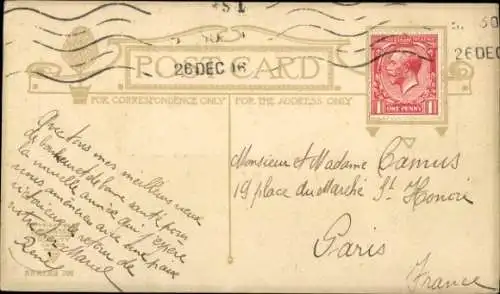 26 DEC 16
50
26 DEC
POST CARD
FOR CORRESPONDENCE ONLY
FOR THE ADDRESS ONLY
ONE PENNY
Avec tous mes meilleurs vœux
de bonheur et de bonne santé pour
la nouvelle année qui j'espère
nous amènera avec une paix
victorieuse le retour de
notre bon Marcel
René
Monsieur et Madame Camus
19 place du Marché St. Honoré
Paris
France